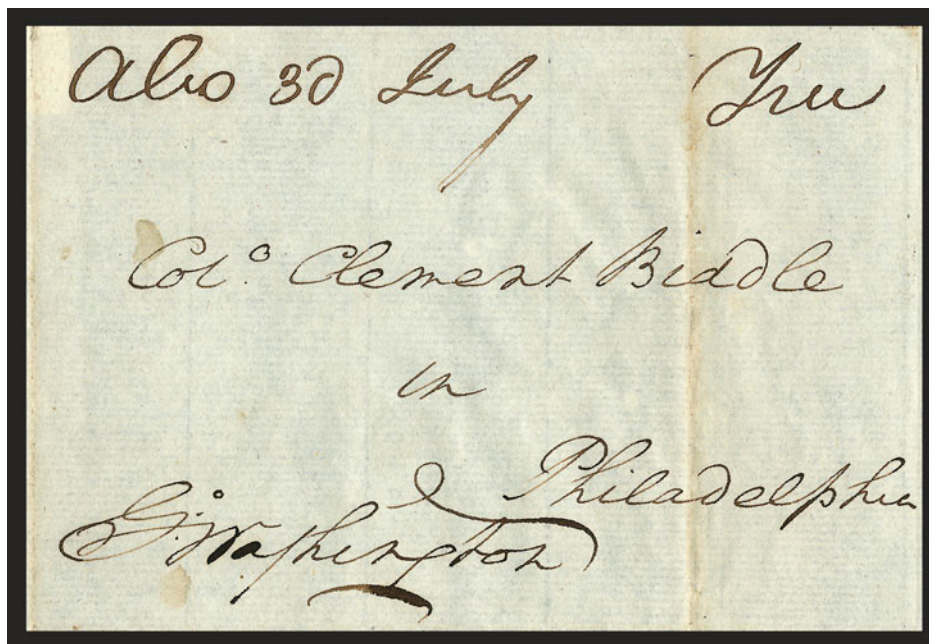 30 July Free
Colo. Clement Biddle
in
Philadelphia
Go: Washington